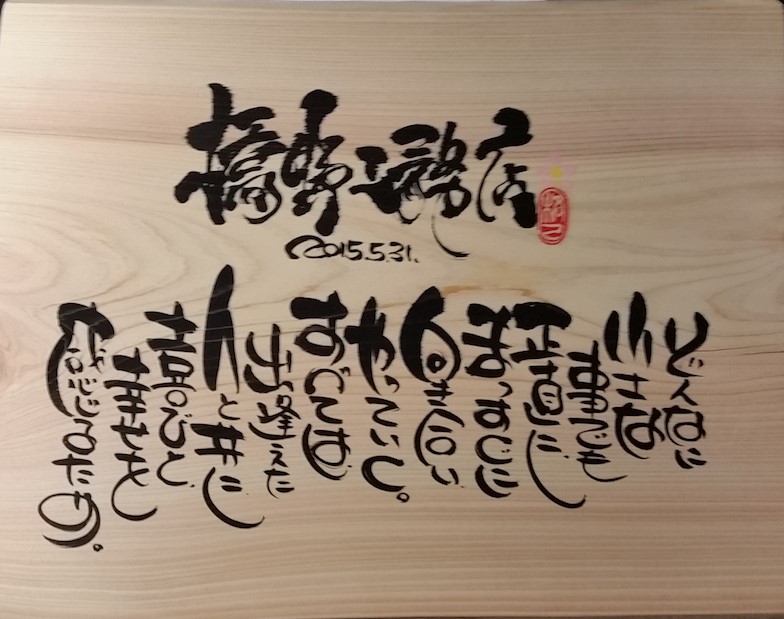 橋野工務店
2015.5.31.
どんなに
小さな
事でも
正直に
まっすぐに
向き合い
やっていく。
すべては、
出逢えた
人と共に
喜びと
幸せを
感じるため。